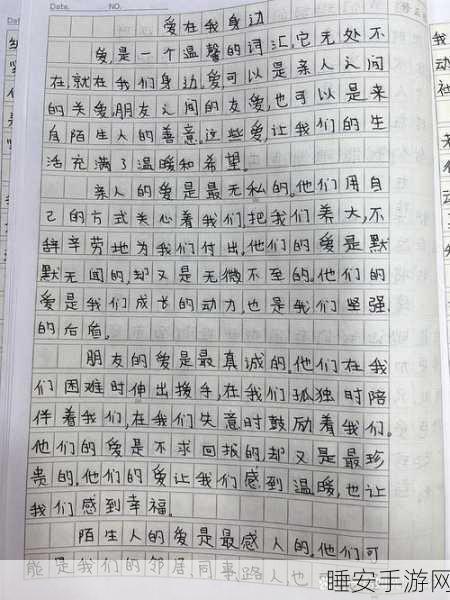 Date. NO.
爱在我身边
爱是一个温馨的词汇,它无处不
在,就在我们身边,爱可以是亲人之间
的关爱,朋友之间的友爱,也可以是来
自陌生人的善意。这些爱,让我们的生
活充满了温暖和希望。
亲人的爱是最无私的。他们用自
己的方式关心着我们,把我们养大,不
辞辛劳地为我们付出。他们的爱是默
默无闻的,却又是无微不至的。他们的
爱是我们成长的动力,也是我们坚强
的后盾。
朋友的爱是最真诚的。他们在我
们困难时伸出援手,在我们孤独时陪
伴着我们,在我们失意时鼓励着我们。
他们的爱是不求回报的却又是最珍
贵的。他们的爱让我们感到温暖,也让
我们感到幸福。
陌生人的爱是最感人的。他们可
能是我们的邻居,同事,路人也
睡安手游网